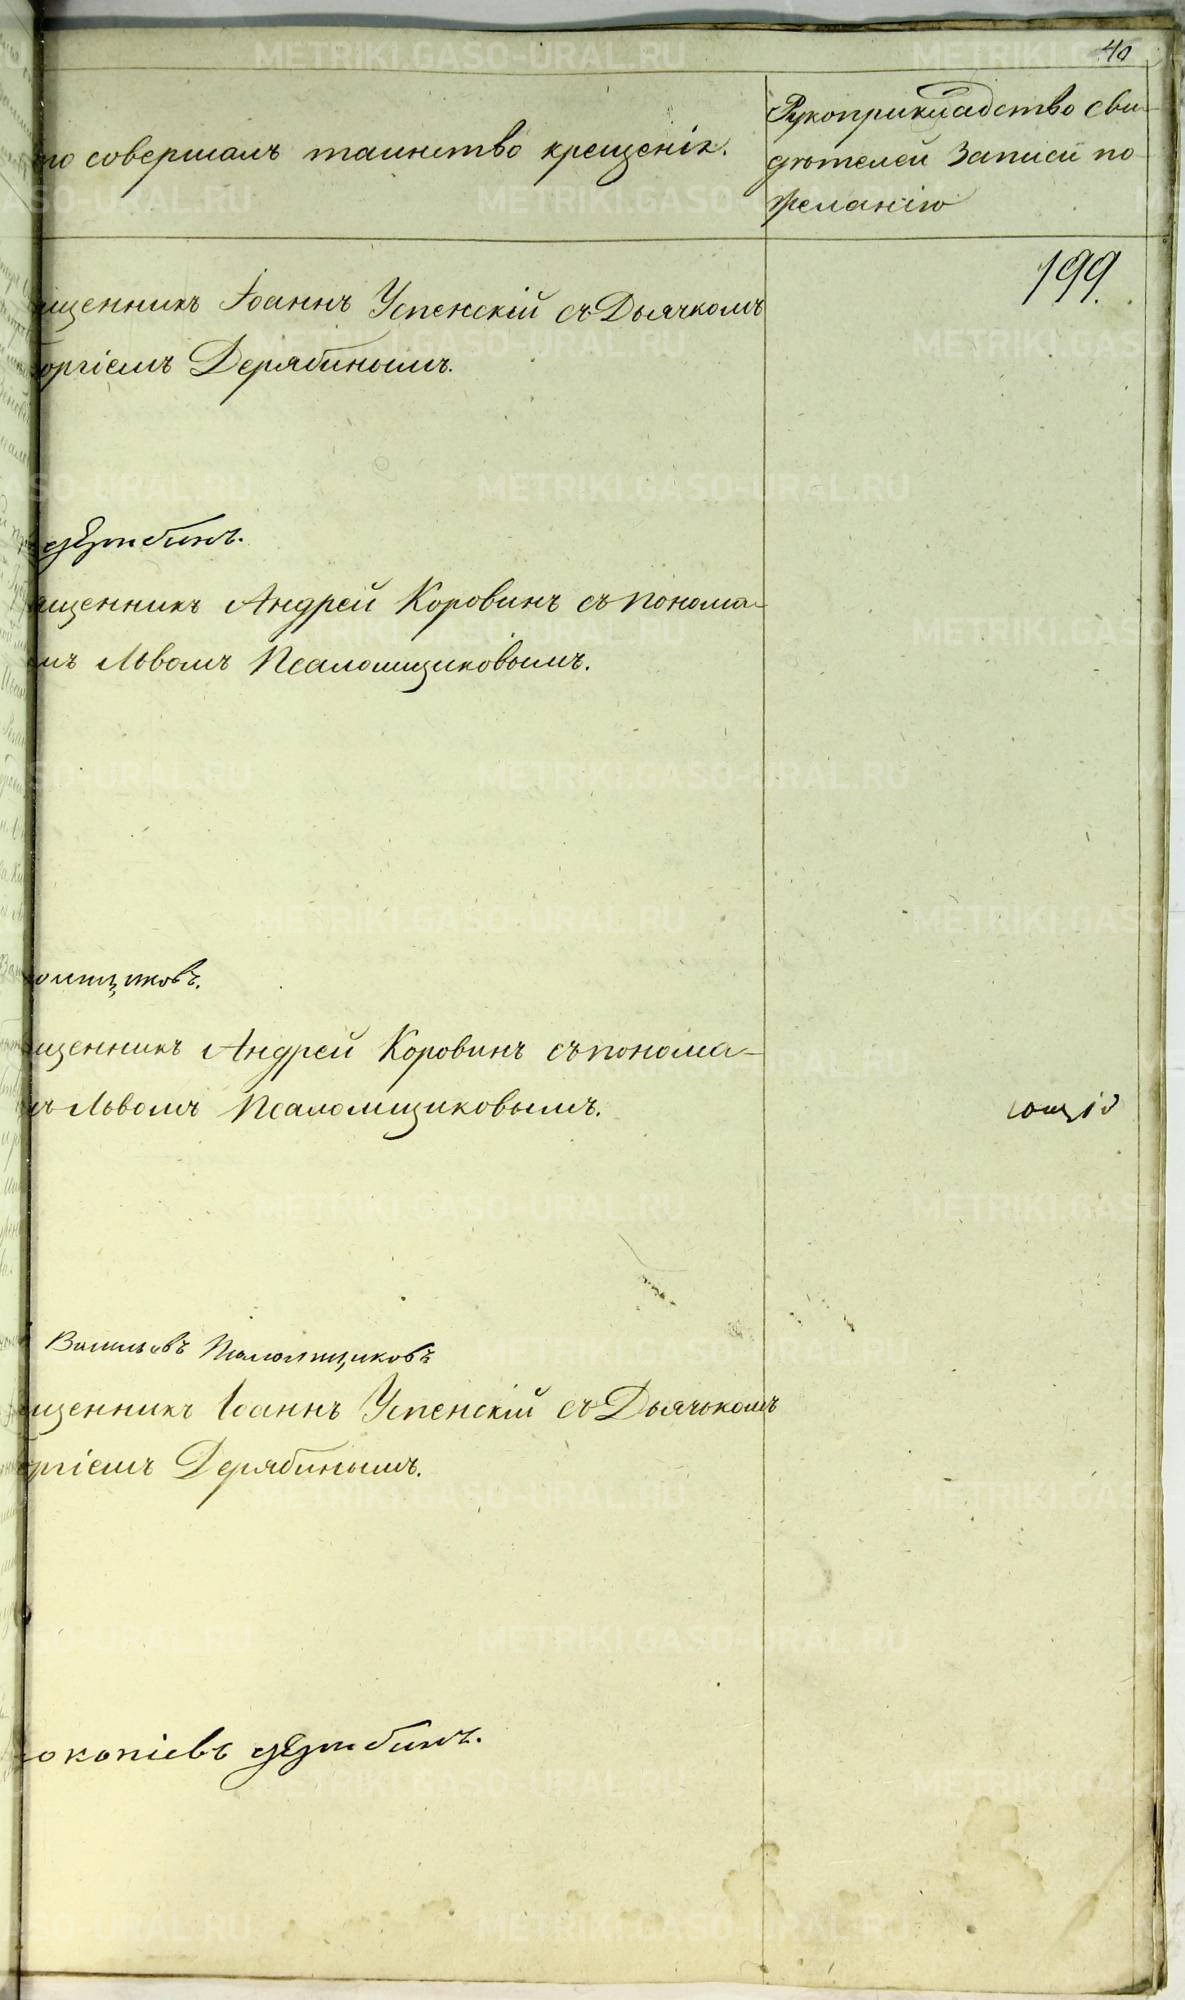 40
то совершалъ таинство крещенія.
Рукоприкладство сви-
дѣтелей записи по
желанію
199.
ященникъ Іоаннъ Успенскій съ Дьячкомъ
оргіемъ Дерябинымъ.
Дерябинъ.
ященникъ Андрей Коровинъ съ понома-
мъ Львомъ Псаломщиковымъ.
омщиковъ.
щенникъ Андрей Коровинъ съ понома-
ъ Львомъ Псаломщиковымъ.
ющій
Васильевъ Псаломщиковъ
щенникъ Іоаннъ Успенскій съ Дьячькомъ
ргіемъ Дерябинымъ.
окопіевъ Дерябинъ.
METRIKI.GASO-URAL.RU